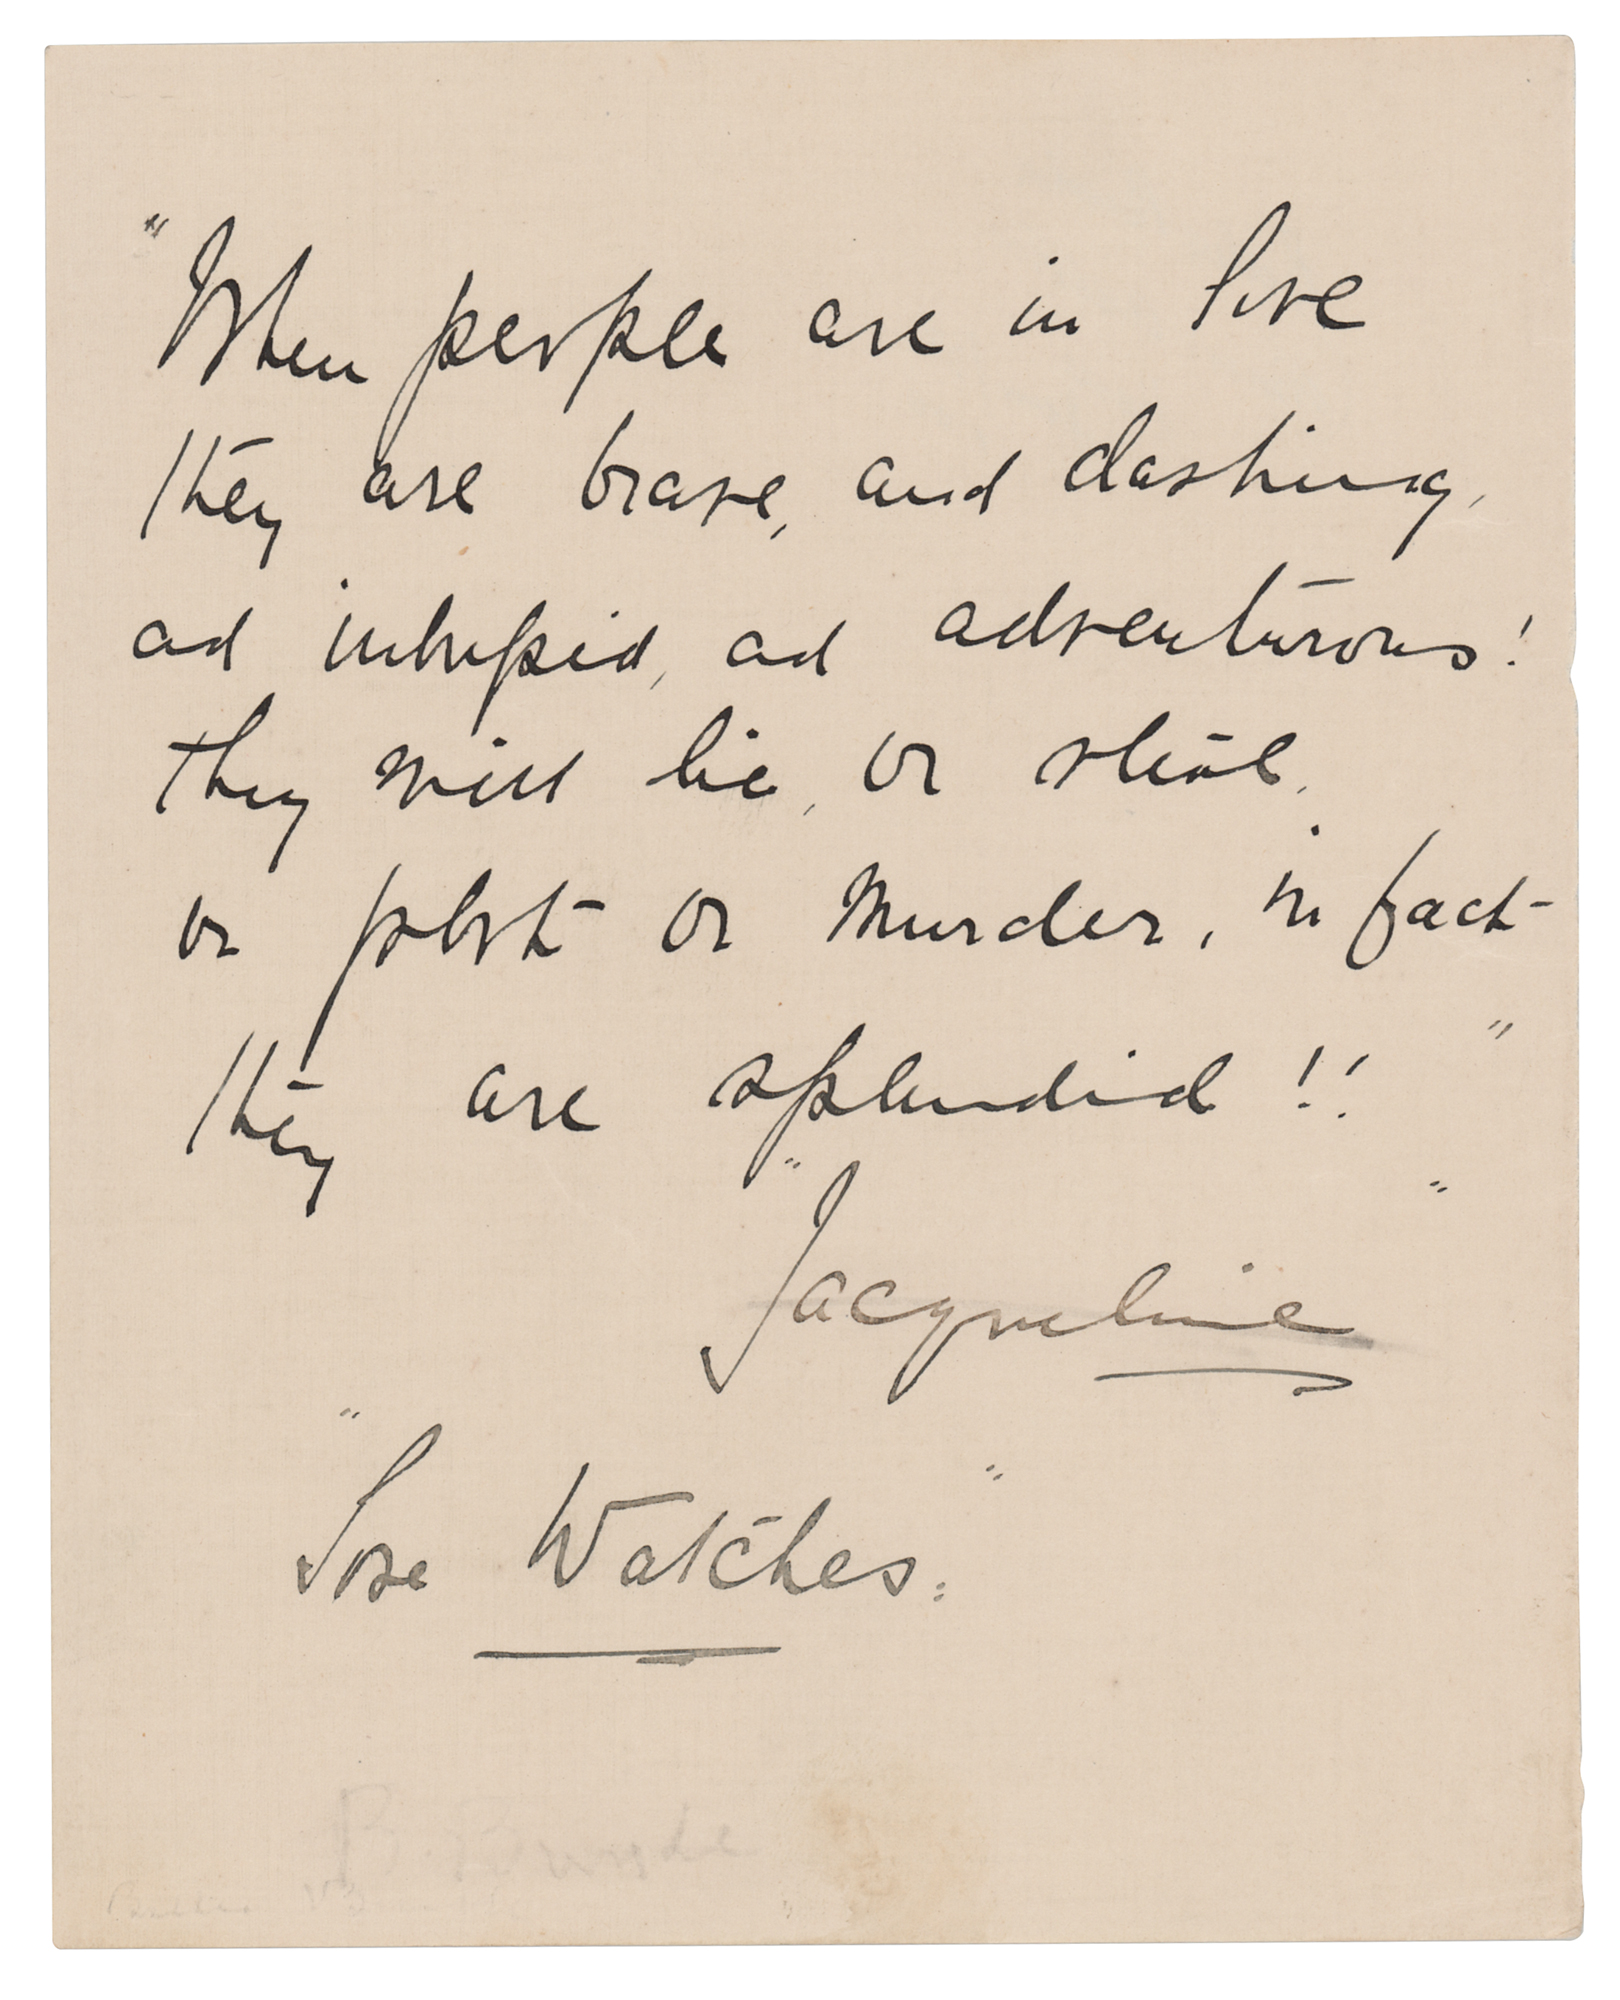 "When people are in love
they are brave, and dashing,
ad intrepid, ad adventurous!
they will lie, or steal,
or plot or murder, in fact-
they are splendid!!"
"Jacqueline"
"Love Watches."